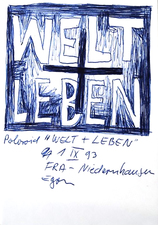 WELT
LEBEN
Polaroid "WELT + LEBEN"
1 IX 93
FRA - Niedernhausen
Egon